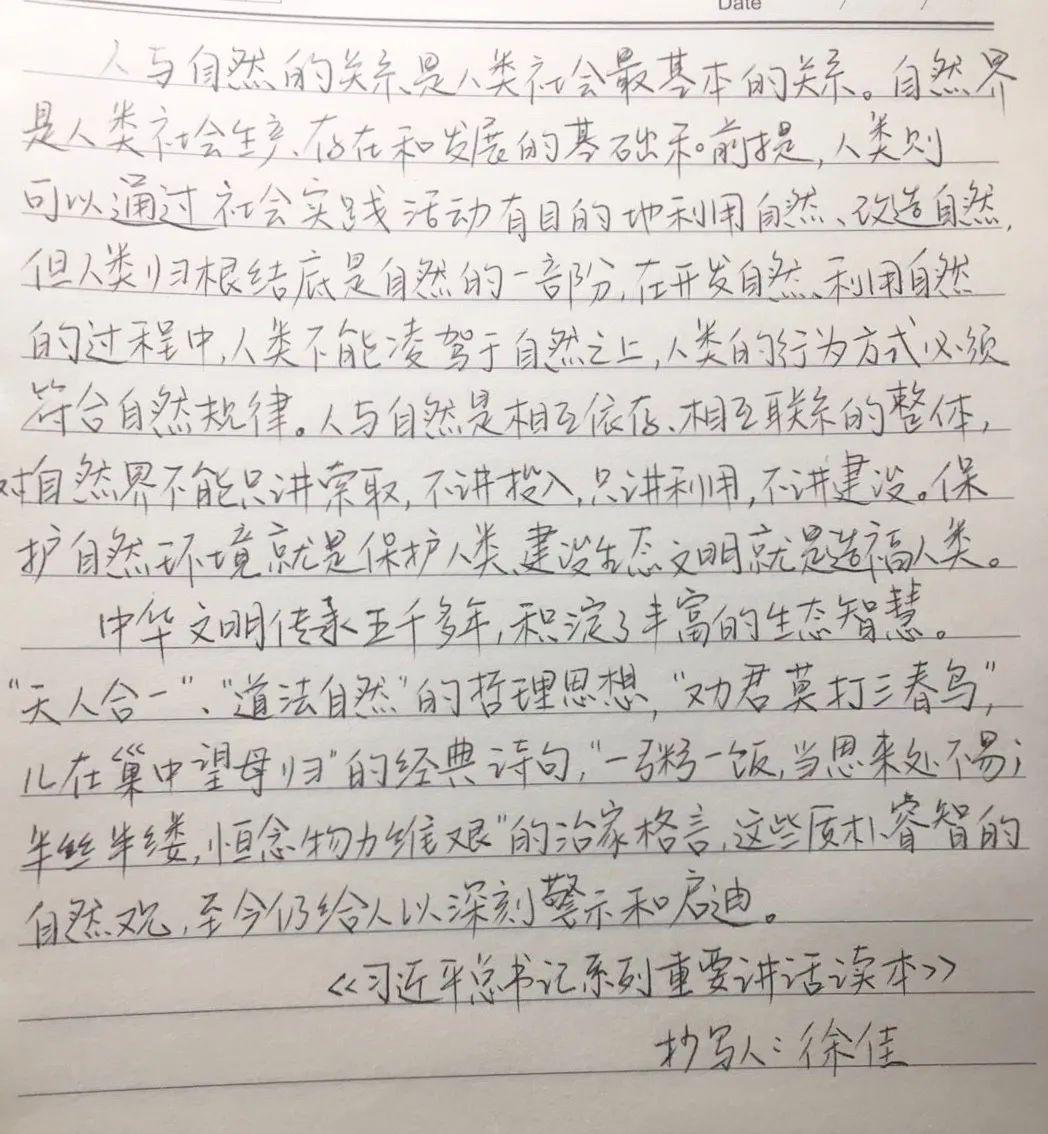 Date / /
人与自然的关系是人类社会最基本的关系。自然界
是人类社会生产、存在和发展的基础和前提,人类则
可以通过社会实践活动有目的地利用自然、改造自然,
但人类归根结底是自然的一部分,在开发自然、利用自然
的过程中,人类不能凌驾于自然之上,人类的行为方式必须
符合自然规律。人与自然是相互依存、相互联系的整体,
对自然界不能只讲索取,不讲投入,只讲利用,不讲建设。保
护自然环境就是保护人类,建设生态文明就是造福人类。
中华文明传承五千多年,积淀了丰富的生态智慧。
“天人合一”、“道法自然”的哲理思想,“劝君莫打三春鸟,
儿在巢中望母归”的经典诗句,“一粥一饭,当思来处不易;
半丝半缕,恒念物力维艰”的治家格言,这些质朴睿智的
自然观,至今仍给人以深刻警示和启迪。
《习近平总书记系列重要讲话读本》
抄写人:徐佳